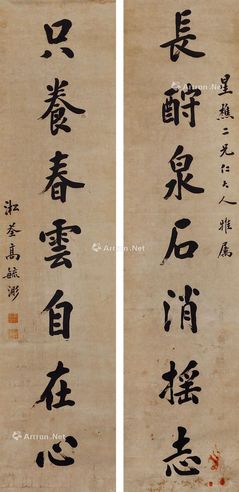 星樵二兄仁大人雅属
長酹泉石消摇志
只養春雲自在心
淞荃高毓浵
Artron.Net
Artron.Net
Artron.Net
Artron.Net